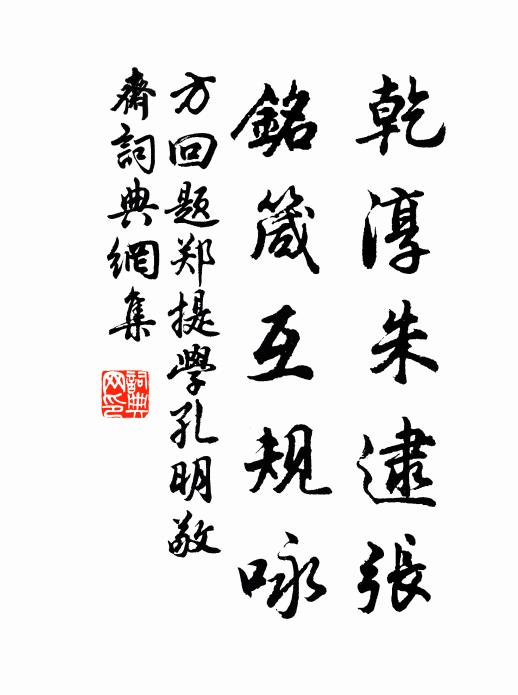 乾淳朱逮張
銘箴互规咏
方回题郑提學孔明敬
齋詞典網集
詞典
网印